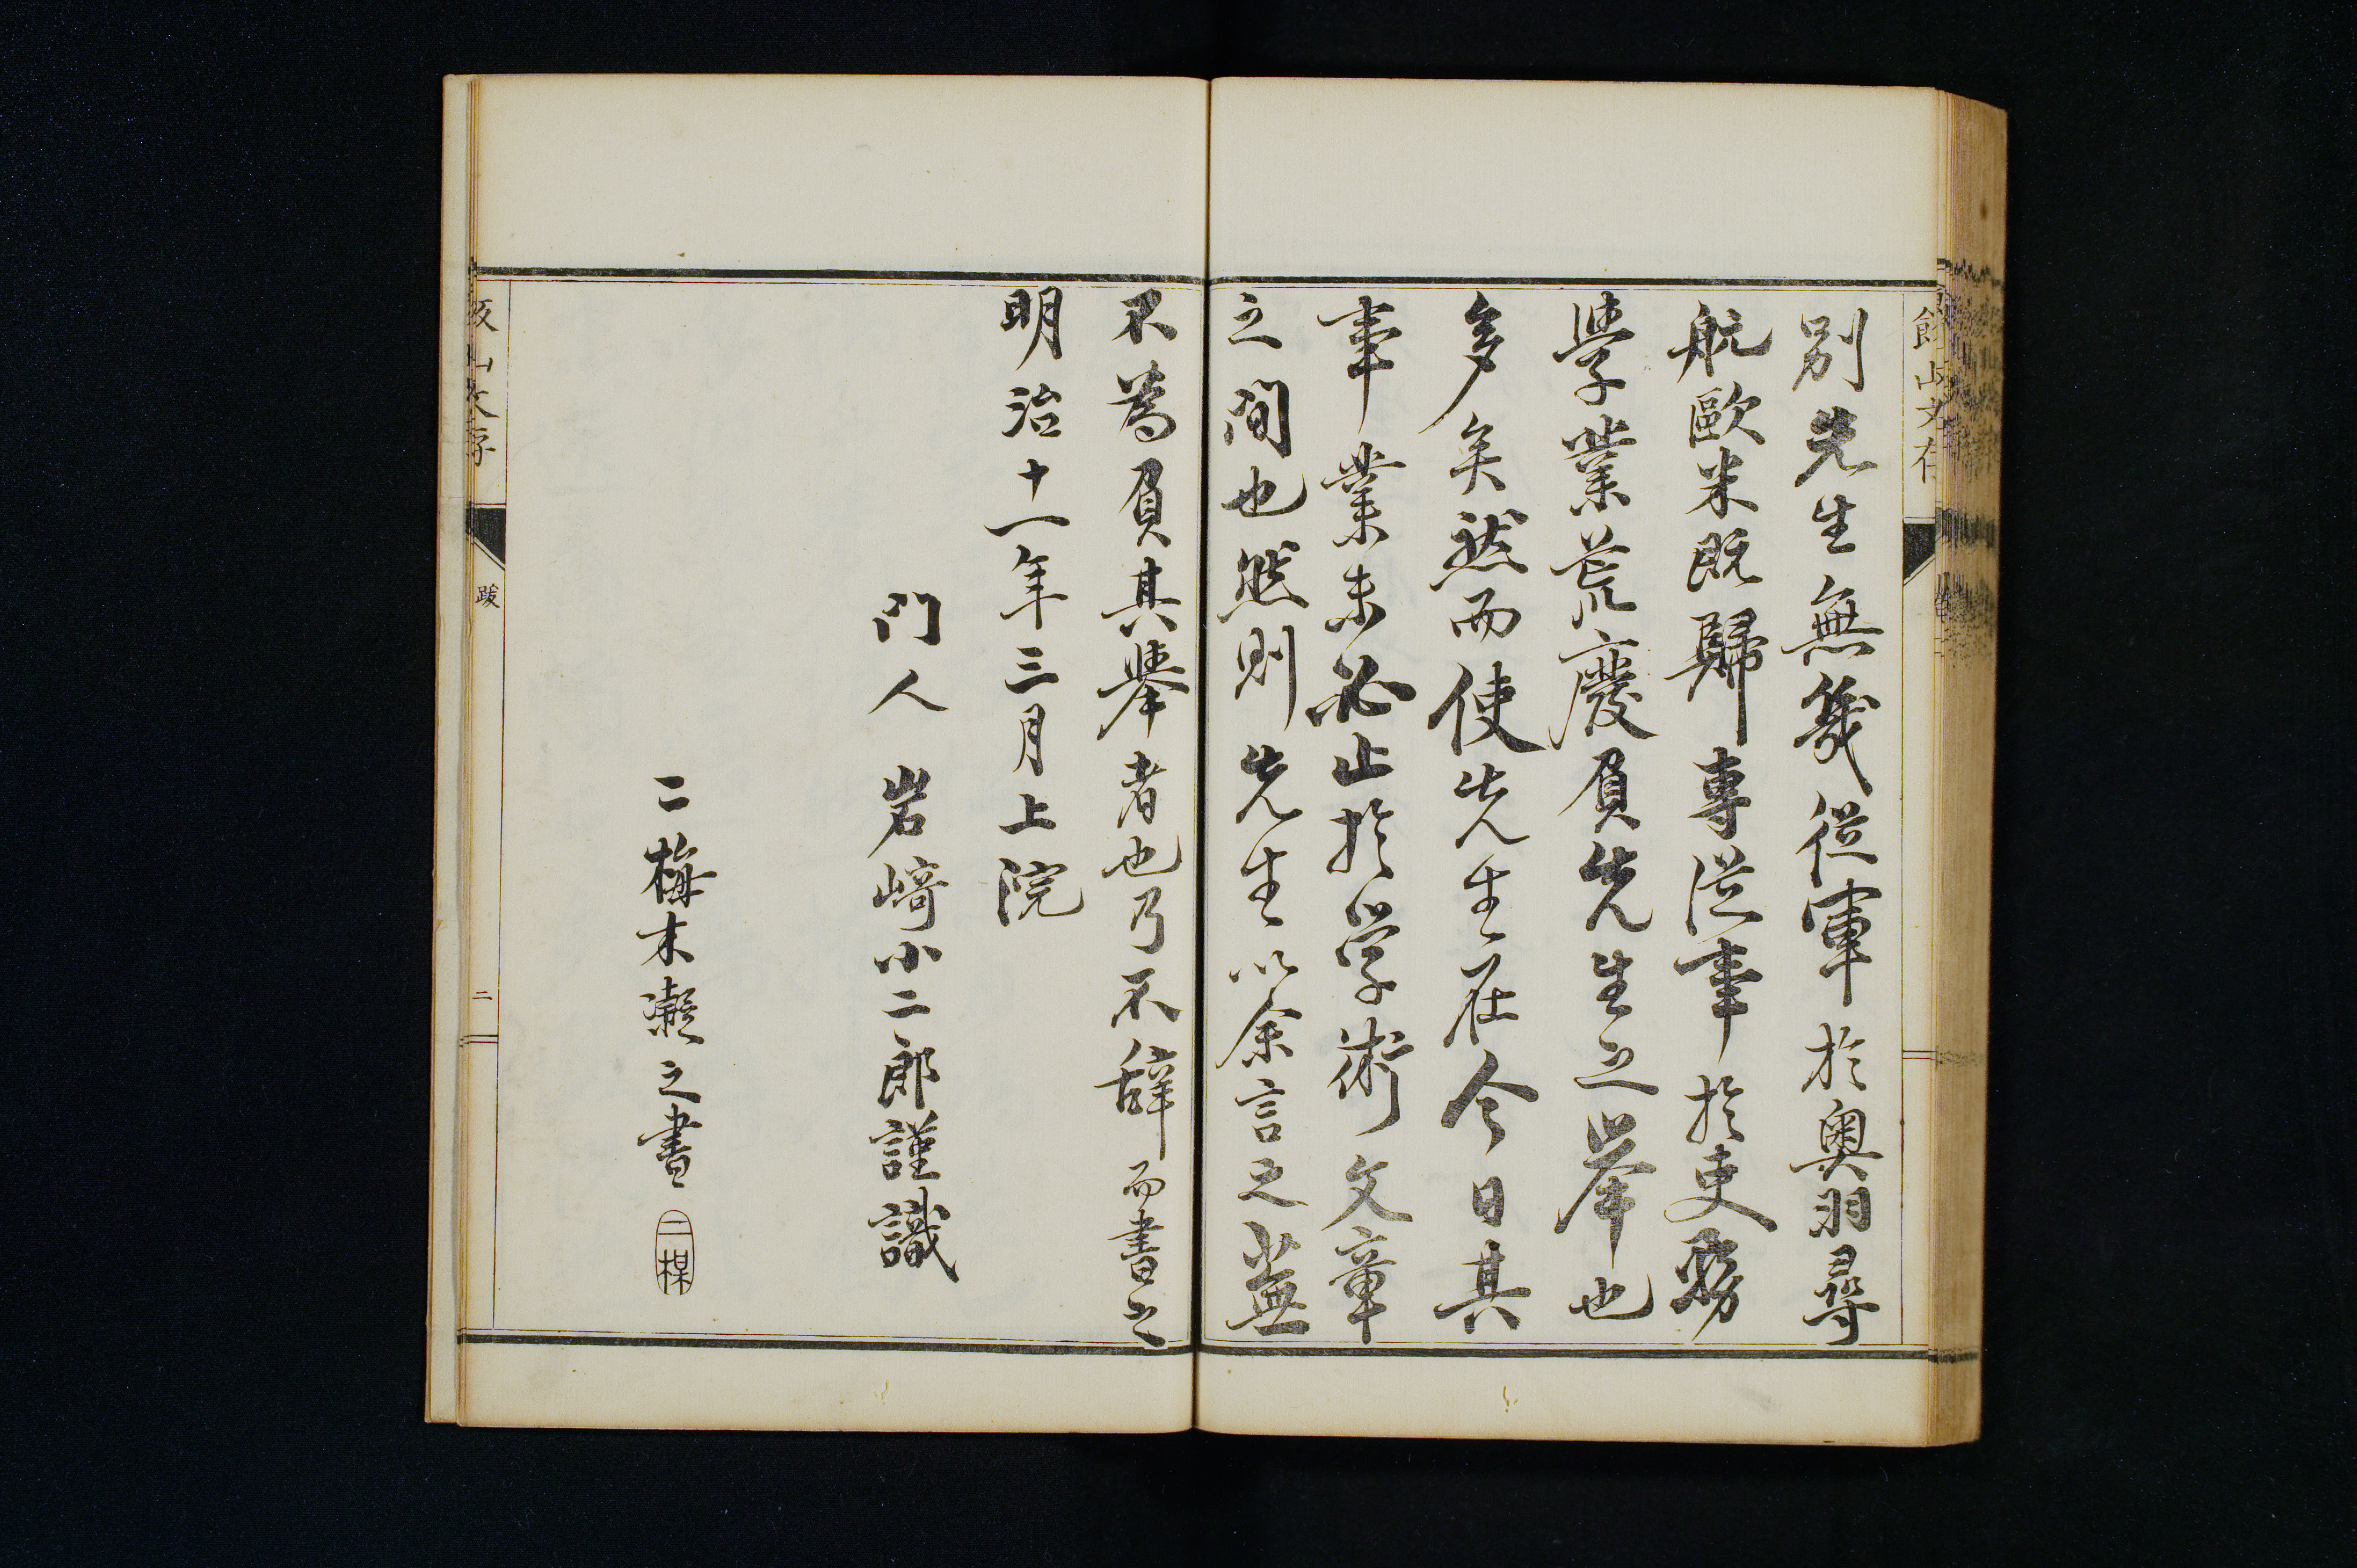 別先生無幾從軍於奧羽尋
航歐米既歸專從事於吏務
學業荒廢負先生之舉也
多矣然而使先生在今日其
事業未必止於學術文章
之間也然則先生以余言之蓋
不為負其舉者也乃不辭而書之
明治十一年三月上浣
門人 岩﨑小二郎謹識
二梅木凝之書
二楳
跋
二